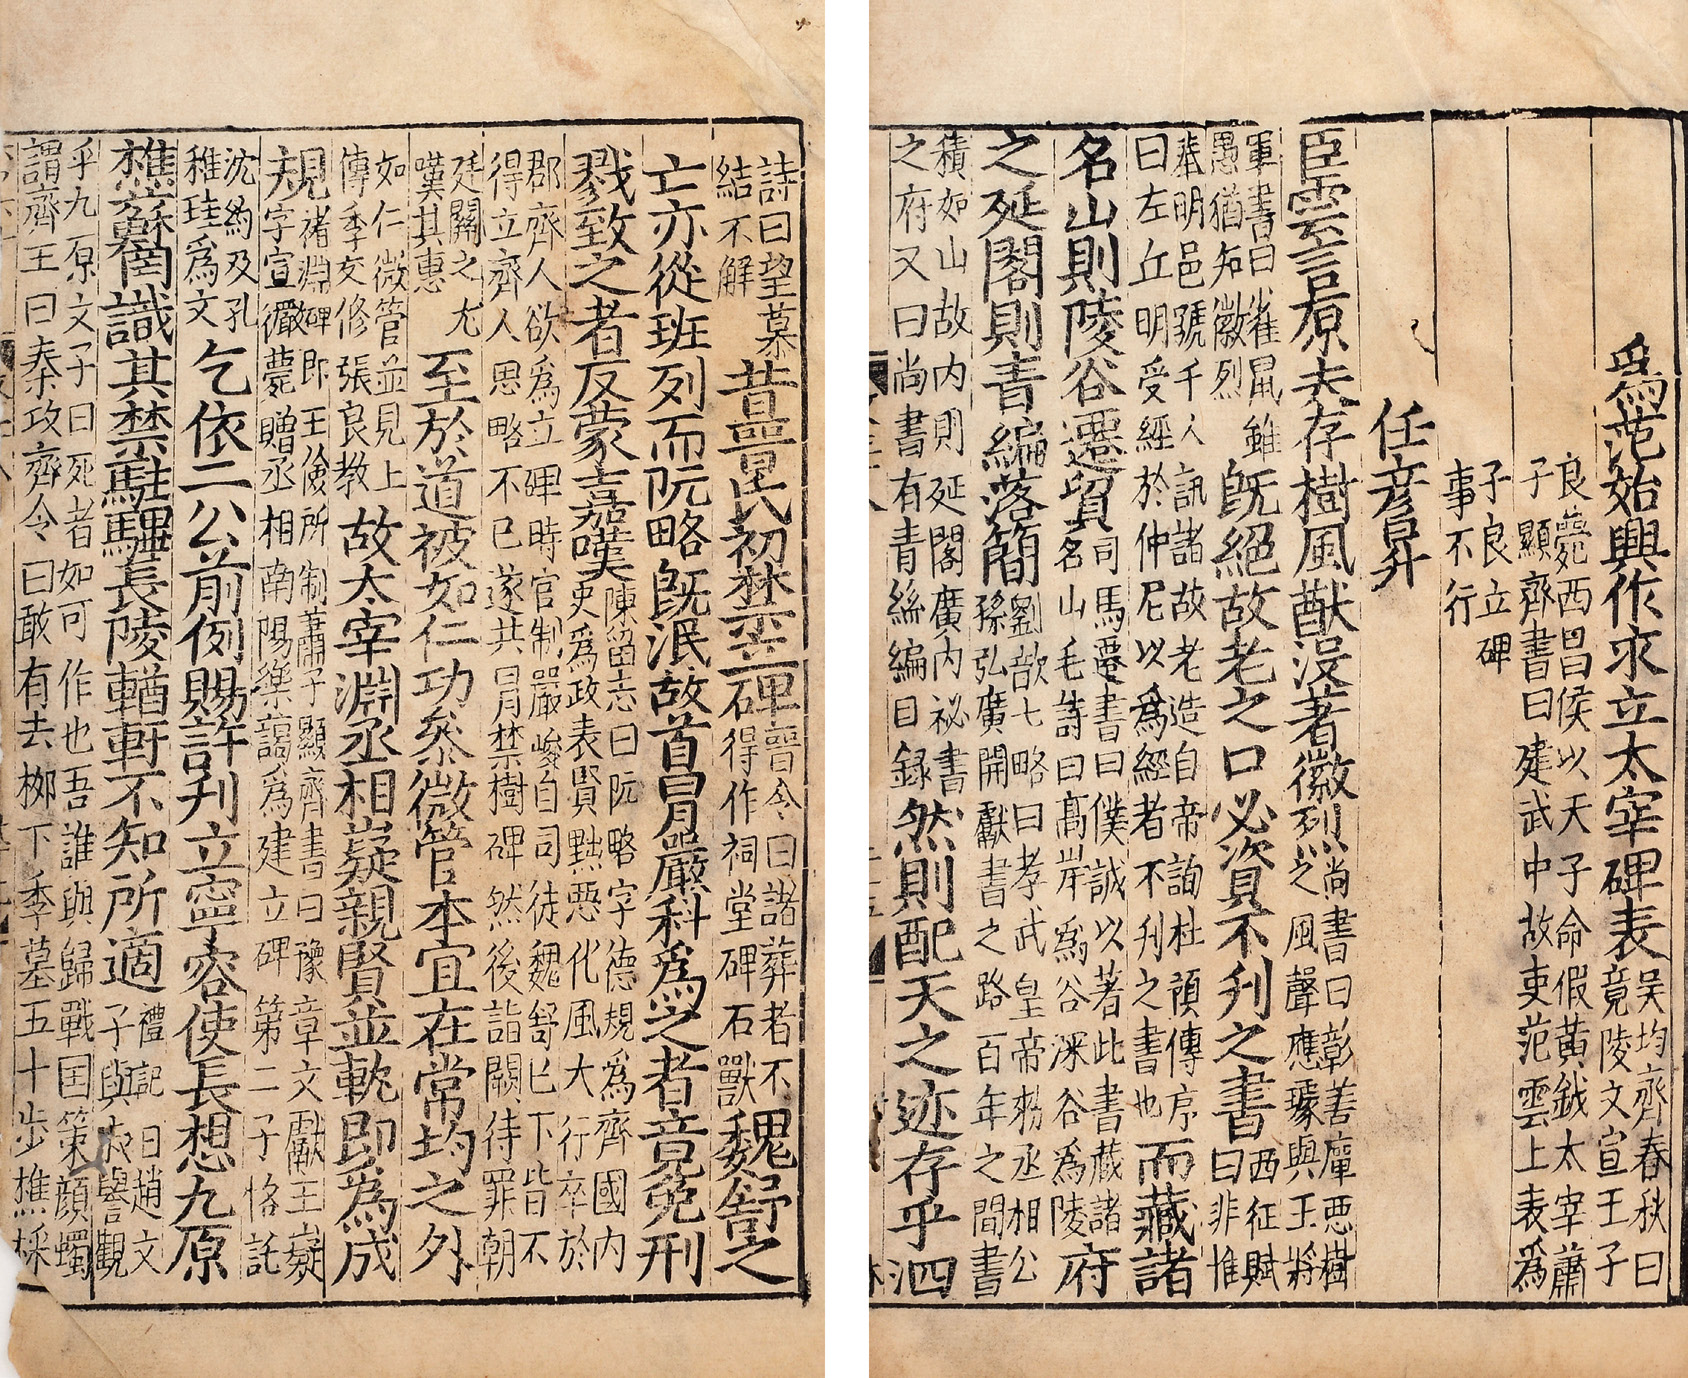 爲范始興作求立太宰碑表吳均齊春秋曰竟陵文宣王子
良薨西昌侯以天子命假黃鉞太宰蕭子顯齊書曰建武中故吏范雲上表爲
子良立碑事不行
任彥昇
臣雲言原夫存樹風猷沒著徽烈尚書曰彰善癉惡樹之風聲應璩與王將
軍書曰雀鼠雖愚猶知徽烈既絕故老之口必資不刋之書西征賦曰非惟
葬明邑號千人訊諸故老造自帝詢杜預傳序曰左丘明受經於仲尼以爲經者不刋之書也而藏諸
名山則陵谷遷貿司馬遷書曰僕誠以著此書藏諸名山毛詩曰髙岸爲谷深谷爲陵府
之延閣則青編落簡劉歆七略曰孝武皇帝勑丞相公孫弘廣開獻書之路百年之間書
積如山故内則延閣廣内祕書之府又曰尚書有青絲編目録然則配天之迹存乎泗
詩曰望慕結不解昔晉氏初禁立碑晉令曰諸葬者不得作祠堂碑石獸魏舒之
亡亦從班列而阮略既泯故首冒嚴科爲之者竟免刑
戮致之者反蒙嘉嘆陳留志曰阮略字德規爲齊國内史爲政表賢黜惡化風大行卒於
郡齊人欲爲立碑時官制嚴峻自司徒魏舒已下皆不得立齊人思略不已遂共冒禁樹碑然後詣闕待罪朝
廷聞之尤嘆其惠至於道被如仁功參微管本宜在常均之外
如仁微管並見上傳季友修張良教故太宰淵丞相嶷親賢並軌即爲成
規褚淵碑即王儉所制蕭子顯齊書曰豫章文獻王嶷字宣儼薨贈丞相南陽樂藹爲建立碑第二子恪託
沈約及孔稚珪爲文乞依二公前例賜許刋立寧容使長想九原
樵蘇罔識其禁駐驆長陵輶軒不知所適禮記曰趙文子與叔譽觀
乎九原文子曰死者如可作也吾誰與歸戰国策顔蠋謂齊王曰秦攻齊令曰敢有去柳下季墓五十步樵採